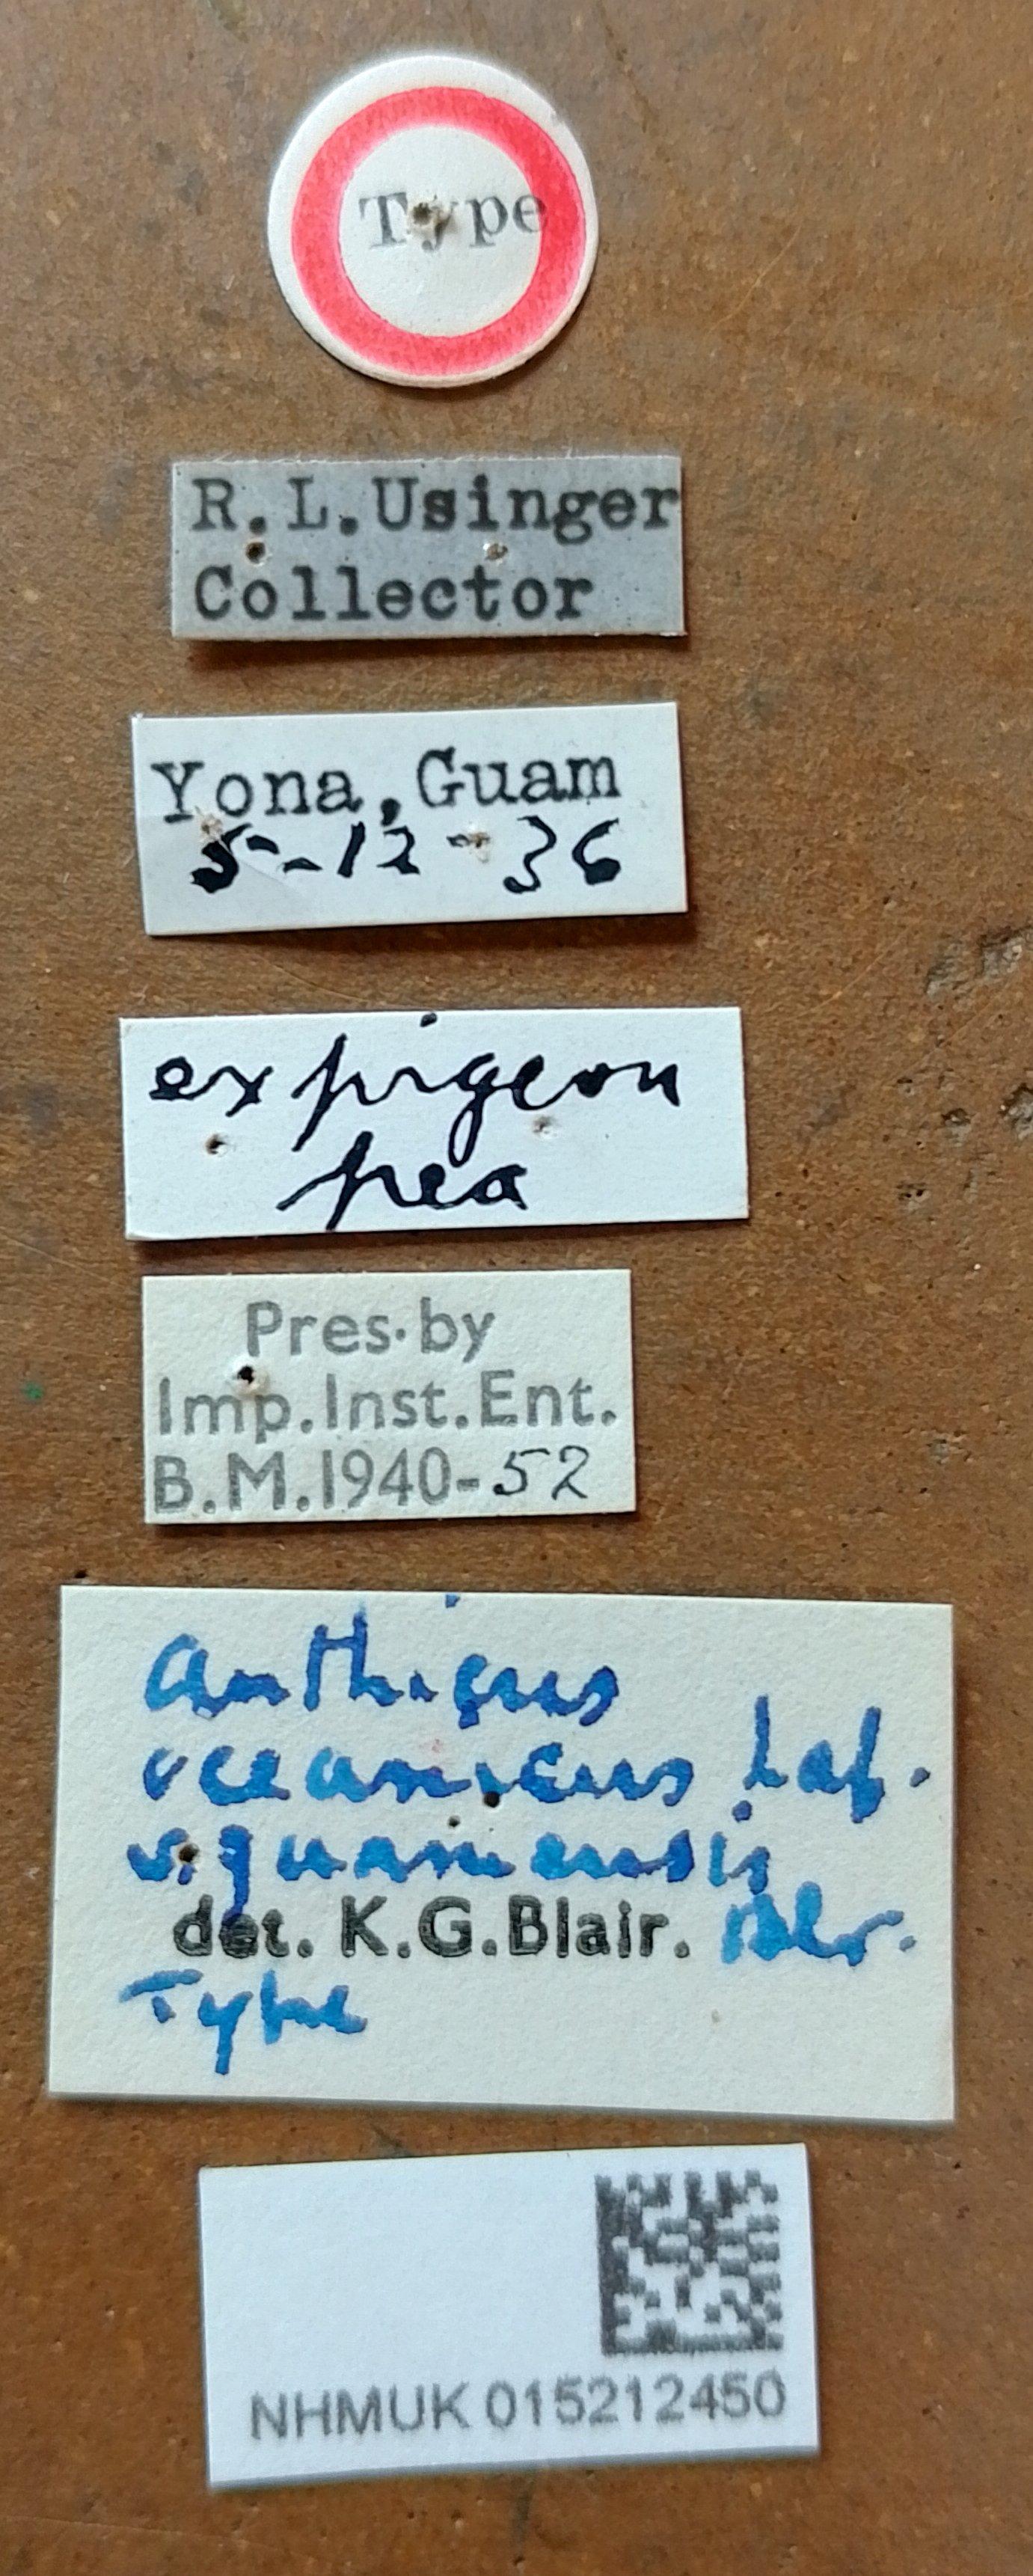 Type
R.L.Usinger
Collector
Yona, Guam
5-12-36
ex pigeon
pea
Pres. by
Imp.Inst.Ent.
B.M.1940-52
Anthicus
oceanicus Laf.
v. guamensis
det. K.G.Blair. Blr.
Type
NHMUK 015212450